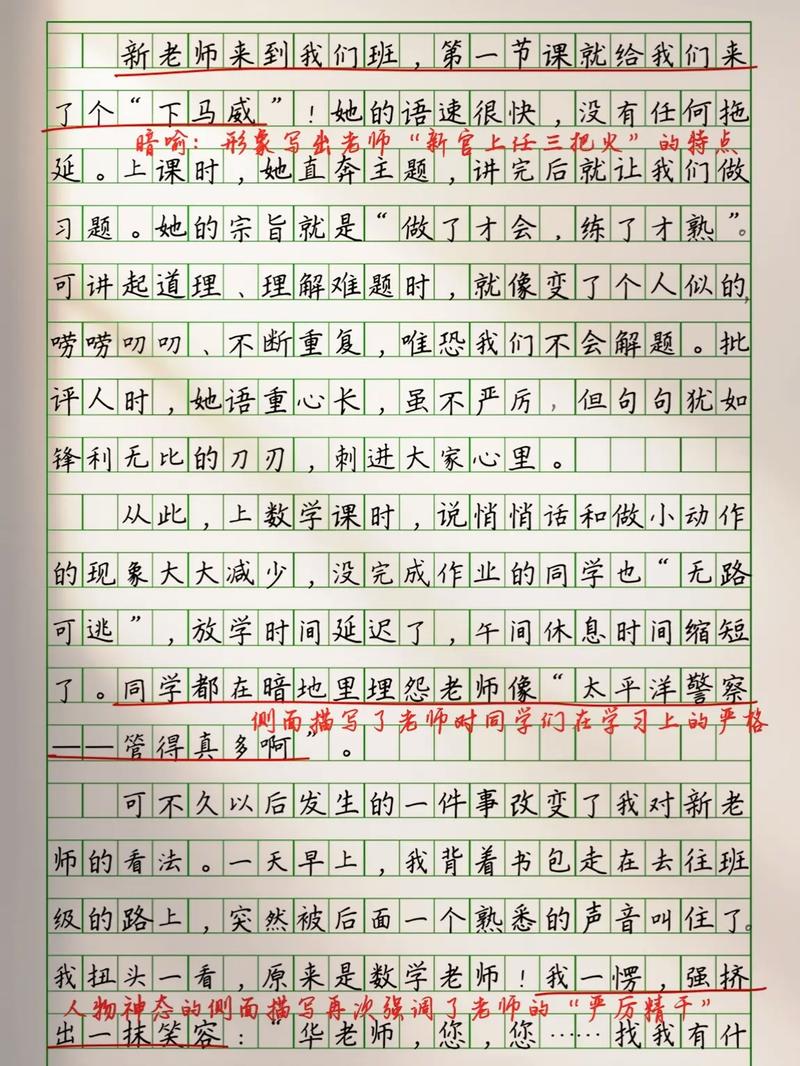 新老师来到我们班，第一节课就给我们来
了个“下马威”！她的语速很快，没有任何拖
暗喻：形象写出老师“新官上任三把火”的特点
延。上课时，她直奔主题，讲完后就让我们做
习题。她的宗旨就是“做了才会，练了才熟”。
可讲起道理、理解难题时，就像变了个人似的，
唠唠叨叨、不断重复，唯恐我们不会解题。批
评人时，她语重心长，虽不严厉，但句句犹如
锋利无比的刀刃，刺进大家心里。
从此，上数学课时，说悄悄话和做小动作
的现象大大减少，没完成作业的同学也“无路
可逃”，放学时间延迟了，午间休息时间缩短
了。同学都在暗地里埋怨老师像“太平洋警察
侧面描写了老师对同学们在学习上的严格
——管得真多啊”。
可不久以后发生的一件事改变了我对新老
师的看法。一天早上，我背着书包走在去往班
级的路上，突然被后面一个熟悉的声音叫住了。
我扭头一看，原来是数学老师！我一愣，强挤
人物神态的侧面描写再次强调了老师的“严厉精干”
出一抹笑容：“华老师，您，您……找我有什